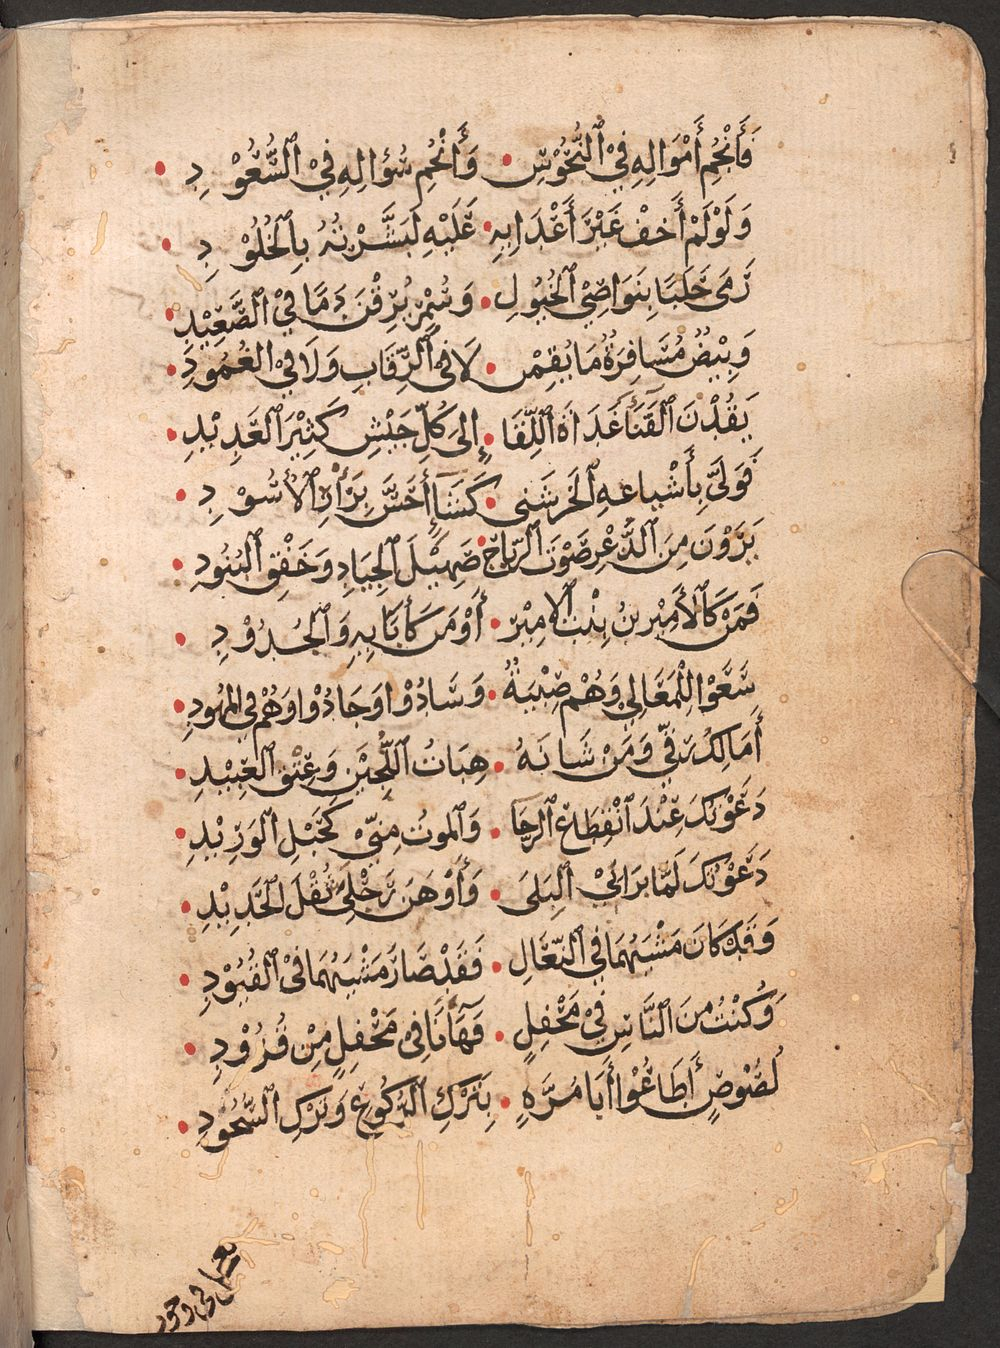 فَأَنْجُمِ أَمْوَالِهِ فِي ٱلنُّحُوْسِ • وَأَنْجُمِ سُؤالِهِ فِيْ ٱلسُّعُوْدِ •
وَلَوْلَمْ أَخفْ غَيْرَ أَعْدَايِهِ • عَلَيْهِ لَبَشَّرْتُهُ بِٱلخُلُوْدِ •
رَمَى حَلَبًا بِنَوَاصِيْ ٱلخُيُولِ • وَسُمْرٍ يُرِقْنَ دَمًا فِيْ ٱلصَّعِيْدِ •
وَبِيْضٌ مُسَافِرَةٌ مَا يُقِمْنَ • لَا فِي ٱلرِّقَابِ وَلَا فِيْ الغُمُودِ •
يَقُدْنَ ٱلقَنَا غَدَاةَ ٱللِّقَا • إِلىَ كُلِّ جَيْشٍ كَثِيْرِ ٱلعَدِيْدِ •
فَوَلىَّ بِأَشْياعِهِ ٱلخَرشَنِى • كَشَآءٍ أَحَسَّ بِزَأرِ ٱلأُسُوْدِ •
يَرَوْنَ مِنَ ٱلذُّعْرِ صَوْتَ ٱلرِّيَاحِ • صَهِيْلَ ٱلجِيَادِ وَخَفْقَ ٱلبُنُوْدِ •
فَمَنْ كَٱلأَمِيْرِ بنِ بِنْتِ ٱلامِيْرِ • أَوْ مَن كَأَبَايِهِ وَٱلجُدُوْدِ •
سَعَوْا لِلْمَعَالِي وَهُمْ صِبْيَةٌ • وَسَادُوْا وَجَادُوْا وَهُمْ فِي المُهُودِ •
أَمَالِكُ رِقِّي وَمَنْ شَانَهُ • هِبَاتُ ٱللُّجَيْنِ وَعِتْقِ ٱلعَبِيْدِ •
دَعَوْتُكَ عِنْدَ ٱنْقِطَاعِ ٱلرجَا • وَٱلموتُ مِنيِّ كَحَبْلِ ٱلوَرِيْدِ •
دَعَوْتُكَ لَمَّا بَرَانِيْ ٱلبِلَى • وَأَوْهَنَ رَجْلَيَّ ثُقْلُ ٱلحَدِيْدِ •
وَقَدْ كَانَ مَشْيُهُمَا فِي ٱلنِّعَالِ • فَقَدْ صَارَ مَشْيُهُمَا فِيْ ٱلقُيُوْدِ •
وَكُنْتُ مِنَ ٱلنَّاسِ فِيْ مَحْفِلٍ • فَهَآ أَنَا فِيْ مَحْفِلٍ مِنْ قُرُوْدِ •
لُصُوْصٍ أَطَاعُوْا أَبَا مُرَّةٍ • بِتَرْكِ ٱلرُّكُوعِ وَتَرْكِ ٱلسُّجُوْدِ •